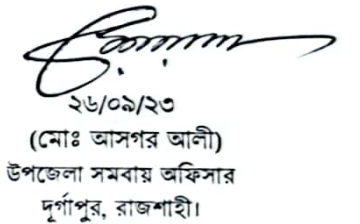 ২৬/০৯/২৩
(মোঃ আসগর আলী)
উপজেলা সমবায় অফিসার
দূর্গাপুর, রাজশাহী।